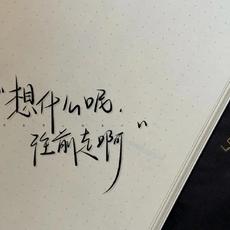 "想什么呢.
往前走啊"